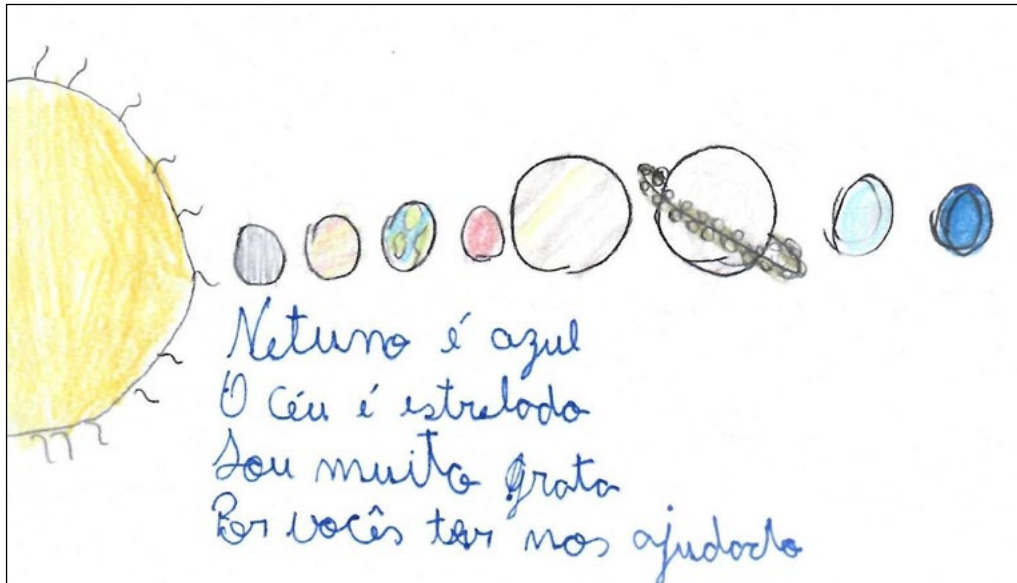 Netuno é azul
O céu é estrelado
Sou muito grata
Por vocês ter nos ajudado